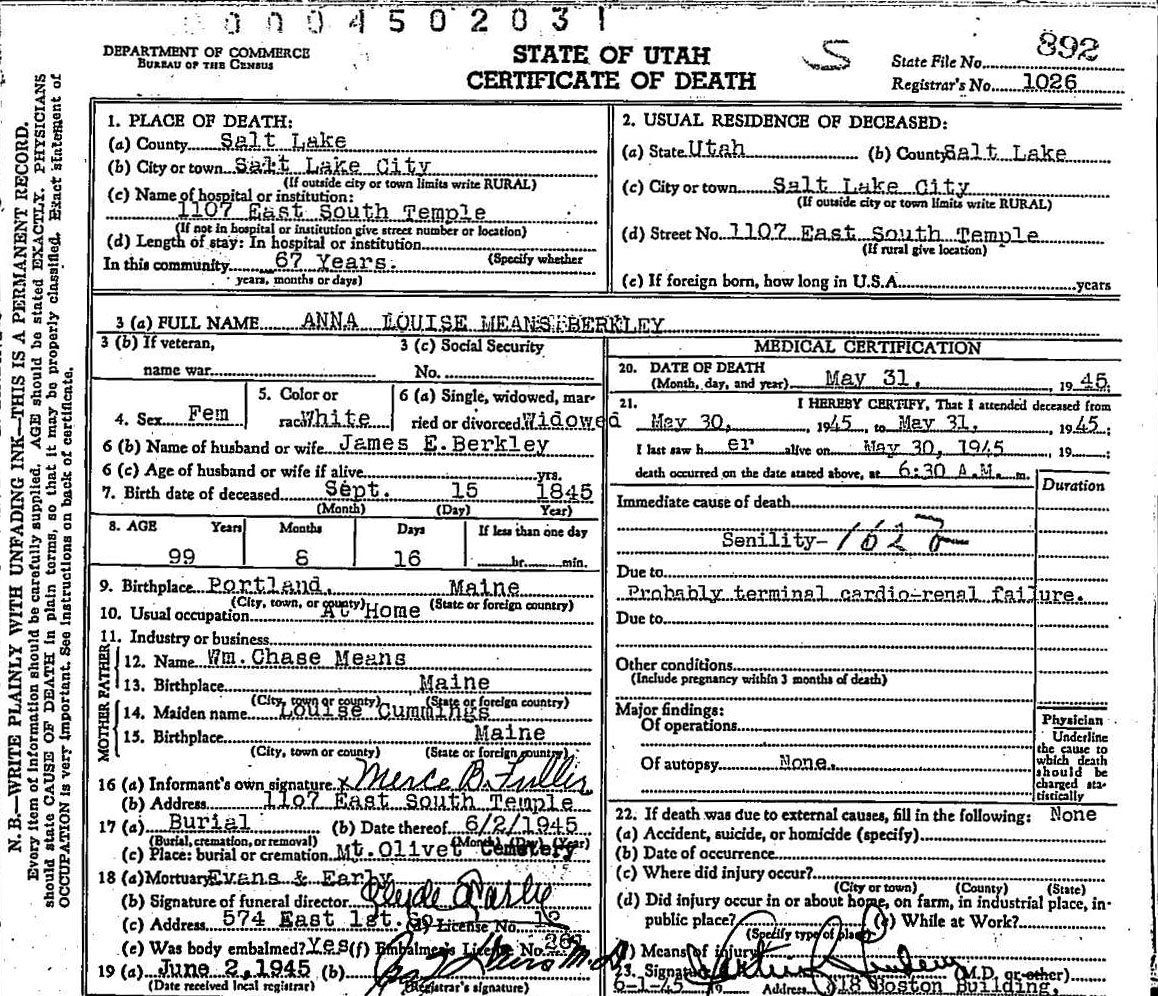 0 0 0 4 5 0 2 0 3 1
DEPARTMENT OF COMMERCE
BUREAU OF THE CENSUS
STATE OF UTAH
CERTIFICATE OF DEATH
S
State File No. 892
Registrar's No. 1026
N. B.—WRITE PLAINLY WITH UNFADING INK—THIS IS A PERMANENT RECORD.
Every item of information should be carefully supplied. AGE should be stated EXACTLY. PHYSICIANS
should state CAUSE OF DEATH in plain terms, so that it may be properly classified. Exact statement of
OCCUPATION is very important. See instructions on back of certificate.
1. PLACE OF DEATH:
(a) County Salt Lake
(b) City or town Salt Lake City
(If outside city or town limits write RURAL)
(c) Name of hospital or institution:
1107 East South Temple
(If not in hospital or institution give street number or location)
(d) Length of stay: In hospital or institution
(Specify whether
In this community 67 Years.
years, months or days)
2. USUAL RESIDENCE OF DECEASED:
(a) State Utah (b) County Salt Lake
(c) City or town Salt Lake City
(If outside city or town limits write RURAL)
(d) Street No. 1107 East South Temple
(If rural give location)
(e) If foreign born, how long in U.S.A. years
3 (a) FULL NAME ANNA LOUISE MEANS BERKLEY
3 (b) If veteran, 3 (c) Social Security
name war No.
4. Sex Fem 5. Color or race White 6 (a) Single, widowed, married or divorced Widowed
6 (b) Name of husband or wife James E. Berkley
6 (c) Age of husband or wife if alive yrs.
7. Birth date of deceased Sept. 15 1845
(Month) (Day) Year)
8. AGE Years Months Days If less than one day
99 8 16 hr. min.
9. Birthplace Portland, Maine
(City, town, or county) (State or foreign country)
10. Usual occupation At Home
11. Industry or business
FATHER
12. Name Wm. Chase Means
13. Birthplace Maine
(City, town or county) (State or foreign country)
MOTHER
14. Maiden name Louise Cummings
15. Birthplace Maine
(City, town or county) (State or foreign country)
16 (a) Informant's own signature x Merce B. Fuller
(b) Address 11o7 East South Temple
17 (a) Burial (b) Date thereof 6/2/1945
(Burial, cremation, or removal) (Month) (Day) (Year)
(c) Place: burial or cremation Mt. Olivet Cemetery
18 (a) Mortuary Evans & Early
(b) Signature of funeral director Clyde Early
(c) Address 574 East 1st. So. (d) License No. 12
(e) Was body embalmed? Yes (f) Embalmer's License No.
19 (a) June 2, 1945 (b)
(Date received local registrar) (Registrar's signature)
MEDICAL CERTIFICATION
20. DATE OF DEATH
(Month, day, and year) May 31, , 19 45
21. I HEREBY CERTIFY, That I attended deceased from
May 30, , 1945, to May 31, , 1945;
I last saw h er alive on May 30, 1945 , 19 ;
death occurred on the date stated above, at 6:30 A.M. m.
Duration
Immediate cause of death
Senility- 162
Due to
Probably terminal cardio-renal failure.
Due to
Other conditions
(Include pregnancy within 3 months of death)
Major findings:
Of operations
Of autopsy None.
Physician
Underline
the cause to
which death
should be
charged sta-
tistically
22. If death was due to external causes, fill in the following: None
(a) Accident, suicide, or homicide (specify)
(b) Date of occurrence
(c) Where did injury occur?
(City or town) (County) (State)
(d) Did injury occur in or about home, on farm, in industrial place, in-
public place? (e) While at Work?
(Specify type of place)
(f) Means of injury
23. Signature (M.D. or other)
6-1-45 19 Address 718 Boston Building,